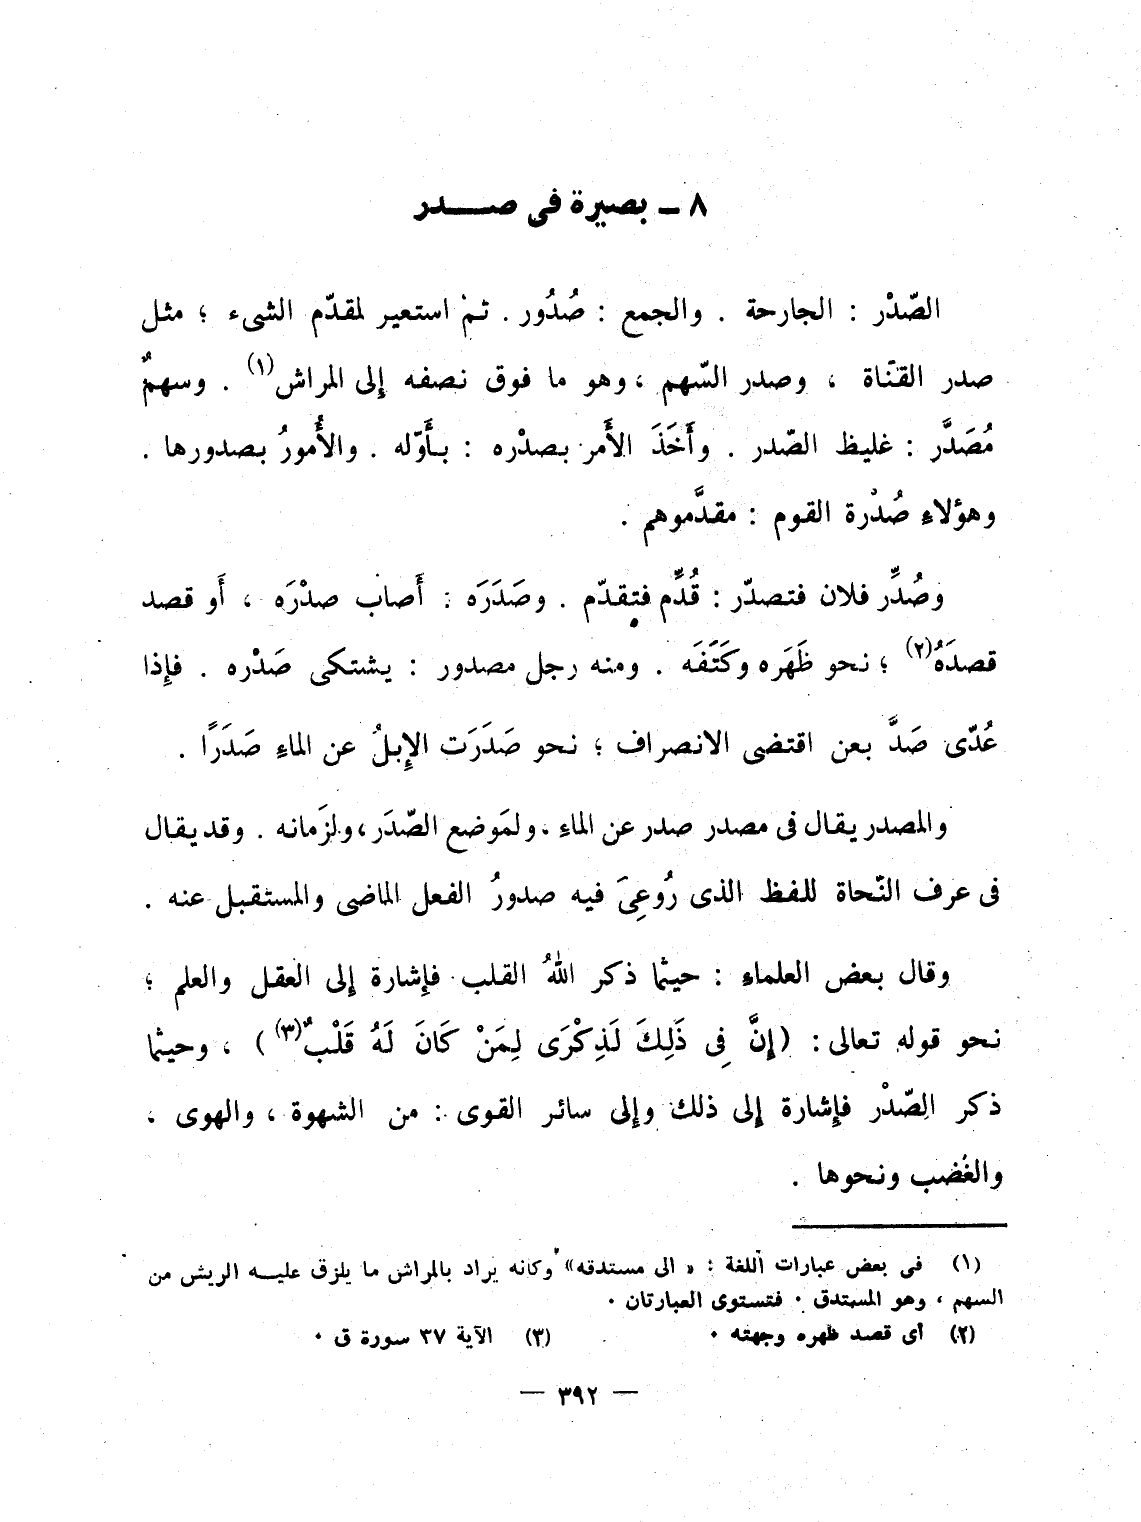 ٨ ـ بصيرة فى صـــدر
الصّدْر : الجارحة . والجمع : صُدُور . ثمّ استعير لمقدّم الشىء ؛ مثل
صدر القناة ، وصدر السّهم ، وهو ما فوق نصفه إِلى المراش(١) . وسهمٌ
مُصَدَّر : غليظ الصّدر . وأَخَذَ الأَمر بصدْره : بأَوّله . والأُمورُ بصدورها .
وهؤلاءِ صُدْرة القوم : مقدَّموهم .
وصُدِّر فلان فتصدّر : قُدِّم فتقدّم . وصَدَرَه : أَصاب صدْرَه ، أَو قصد
قصدَهُ(٢) ؛ نحو ظَهَره وكَتَفَه . ومنه رجل مصدور : يشتكى صَدْره . فإِذا
عُدّى صَدَّ بعن اقتضى الانصراف ؛ نحو صَدَرَت الإِبلُ عن الماءِ صَدَرًا .
والمصدر يقال فى مصدر صدر عن الماءِ ، ولمَوضع الصّدَر ، ولزَمانه . وقد يقال
فى عرف النّحاة للفظ الذى رُوعِىَ فيه صدورُ الفعل الماضى والمستقبل عنه .
وقال بعض العلماءِ : حيثما ذكر اللهُ القلب فإِشارة إِلى العقل والعلم ؛
نحو قوله تعالى : (إِنَّ فِى ذَلِكَ لَذِكْرَى لِمَنْ كَانَ لَهُ قَلْبٌ(٣) ) ، وحيثما
ذكر الصّدْر فإِشارة إِلى ذلك وإِلى سائر القوى : من الشهوة ، والهوى ،
والغضب ونحوها .
(١) فى بعض عبارات اللغة : « الى مستدقه» وكانه يراد بالمراش ما يلزق عليــه الريش من
السهم ، وهو المستدق ٠ فتستوى العبارتان ٠
(٢) أى قصد ظهره وجهته ٠ (٣) الآية ٣٧ سورة ق ٠
— ٣٩٢ —